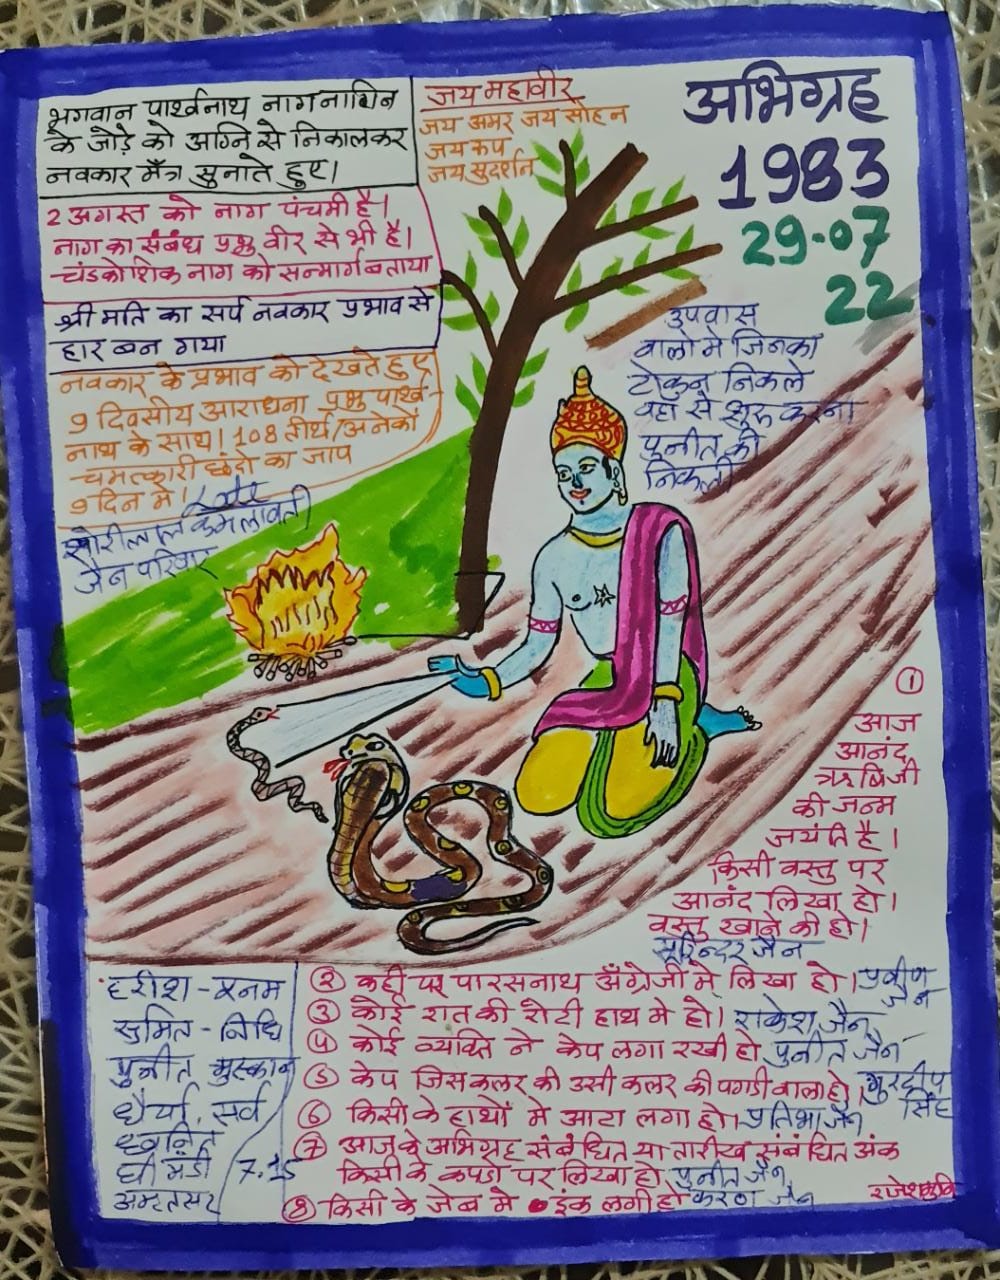 भगवान पार्श्वनाथ नाग नागिन
के जोड़े को अग्नि से निकालकर
नवकार मँत्र सुनाते हुए।
जय महावीर
जय अमर जय सोहन
जय रूप
जय सुदर्शन
अभिग्रह
1983
29-07
22
2 अगस्त को नाग पंचमी है।
नाग का संबंध प्रभु वीर से भी है।
चंडकोशिक नाग को सन्मार्ग बताया
श्री मति का सर्प नवकार प्रभाव से
हार बन गया
नवकार के प्रभाव को देखते हुए
9 दिवसीय आराधना प्रभु पार्श्व-
नाथ के साथ। 108 तीर्थ/अनेकों
चमत्कारी छंदो का जाप
9 दिन मे।
कमलावती
जैन परिवार
उपवास
वालो मे जिनका
टोकन निकले
वहा से शुरू करना
पुनीत की
निकली
①
आज
आनंद
ऋषिजी
की जन्म
जयंति है।
किसी वस्तु पर
आनंद लिखा हो।
वस्तु खाने की हो।
सुरिन्दर जैन
② कही पर पारसनाथ अँग्रेजी मे लिखा हो। प्रवीण
जैन
③ कोई रात की रोटी हाथ मे हो। राकेश जैन
④ कोई व्यक्ति ने केप लगा रखी हो पुनीत जैन
⑤ केप जिस कलर की उसी कलर की पगडी वाला हो। गुरदीप
सिंह
⑥ किसी के हाथों मे आटा लगा हो। प्रतिभा जैन
⑦ आज के अभिग्रह संबंधित या तारीख संबंधित अंक
किसी के कपडो पर लिखा हो पुनीत जैन
⑧ किसी के जेब मे इंक लगी हो करण जैन
हरीश - पूनम
सुमित - निधि
पुनीत मुस्कान
धैर्या, सर्व
ध्वनित
घी मंडी 7.15
अमृतसर